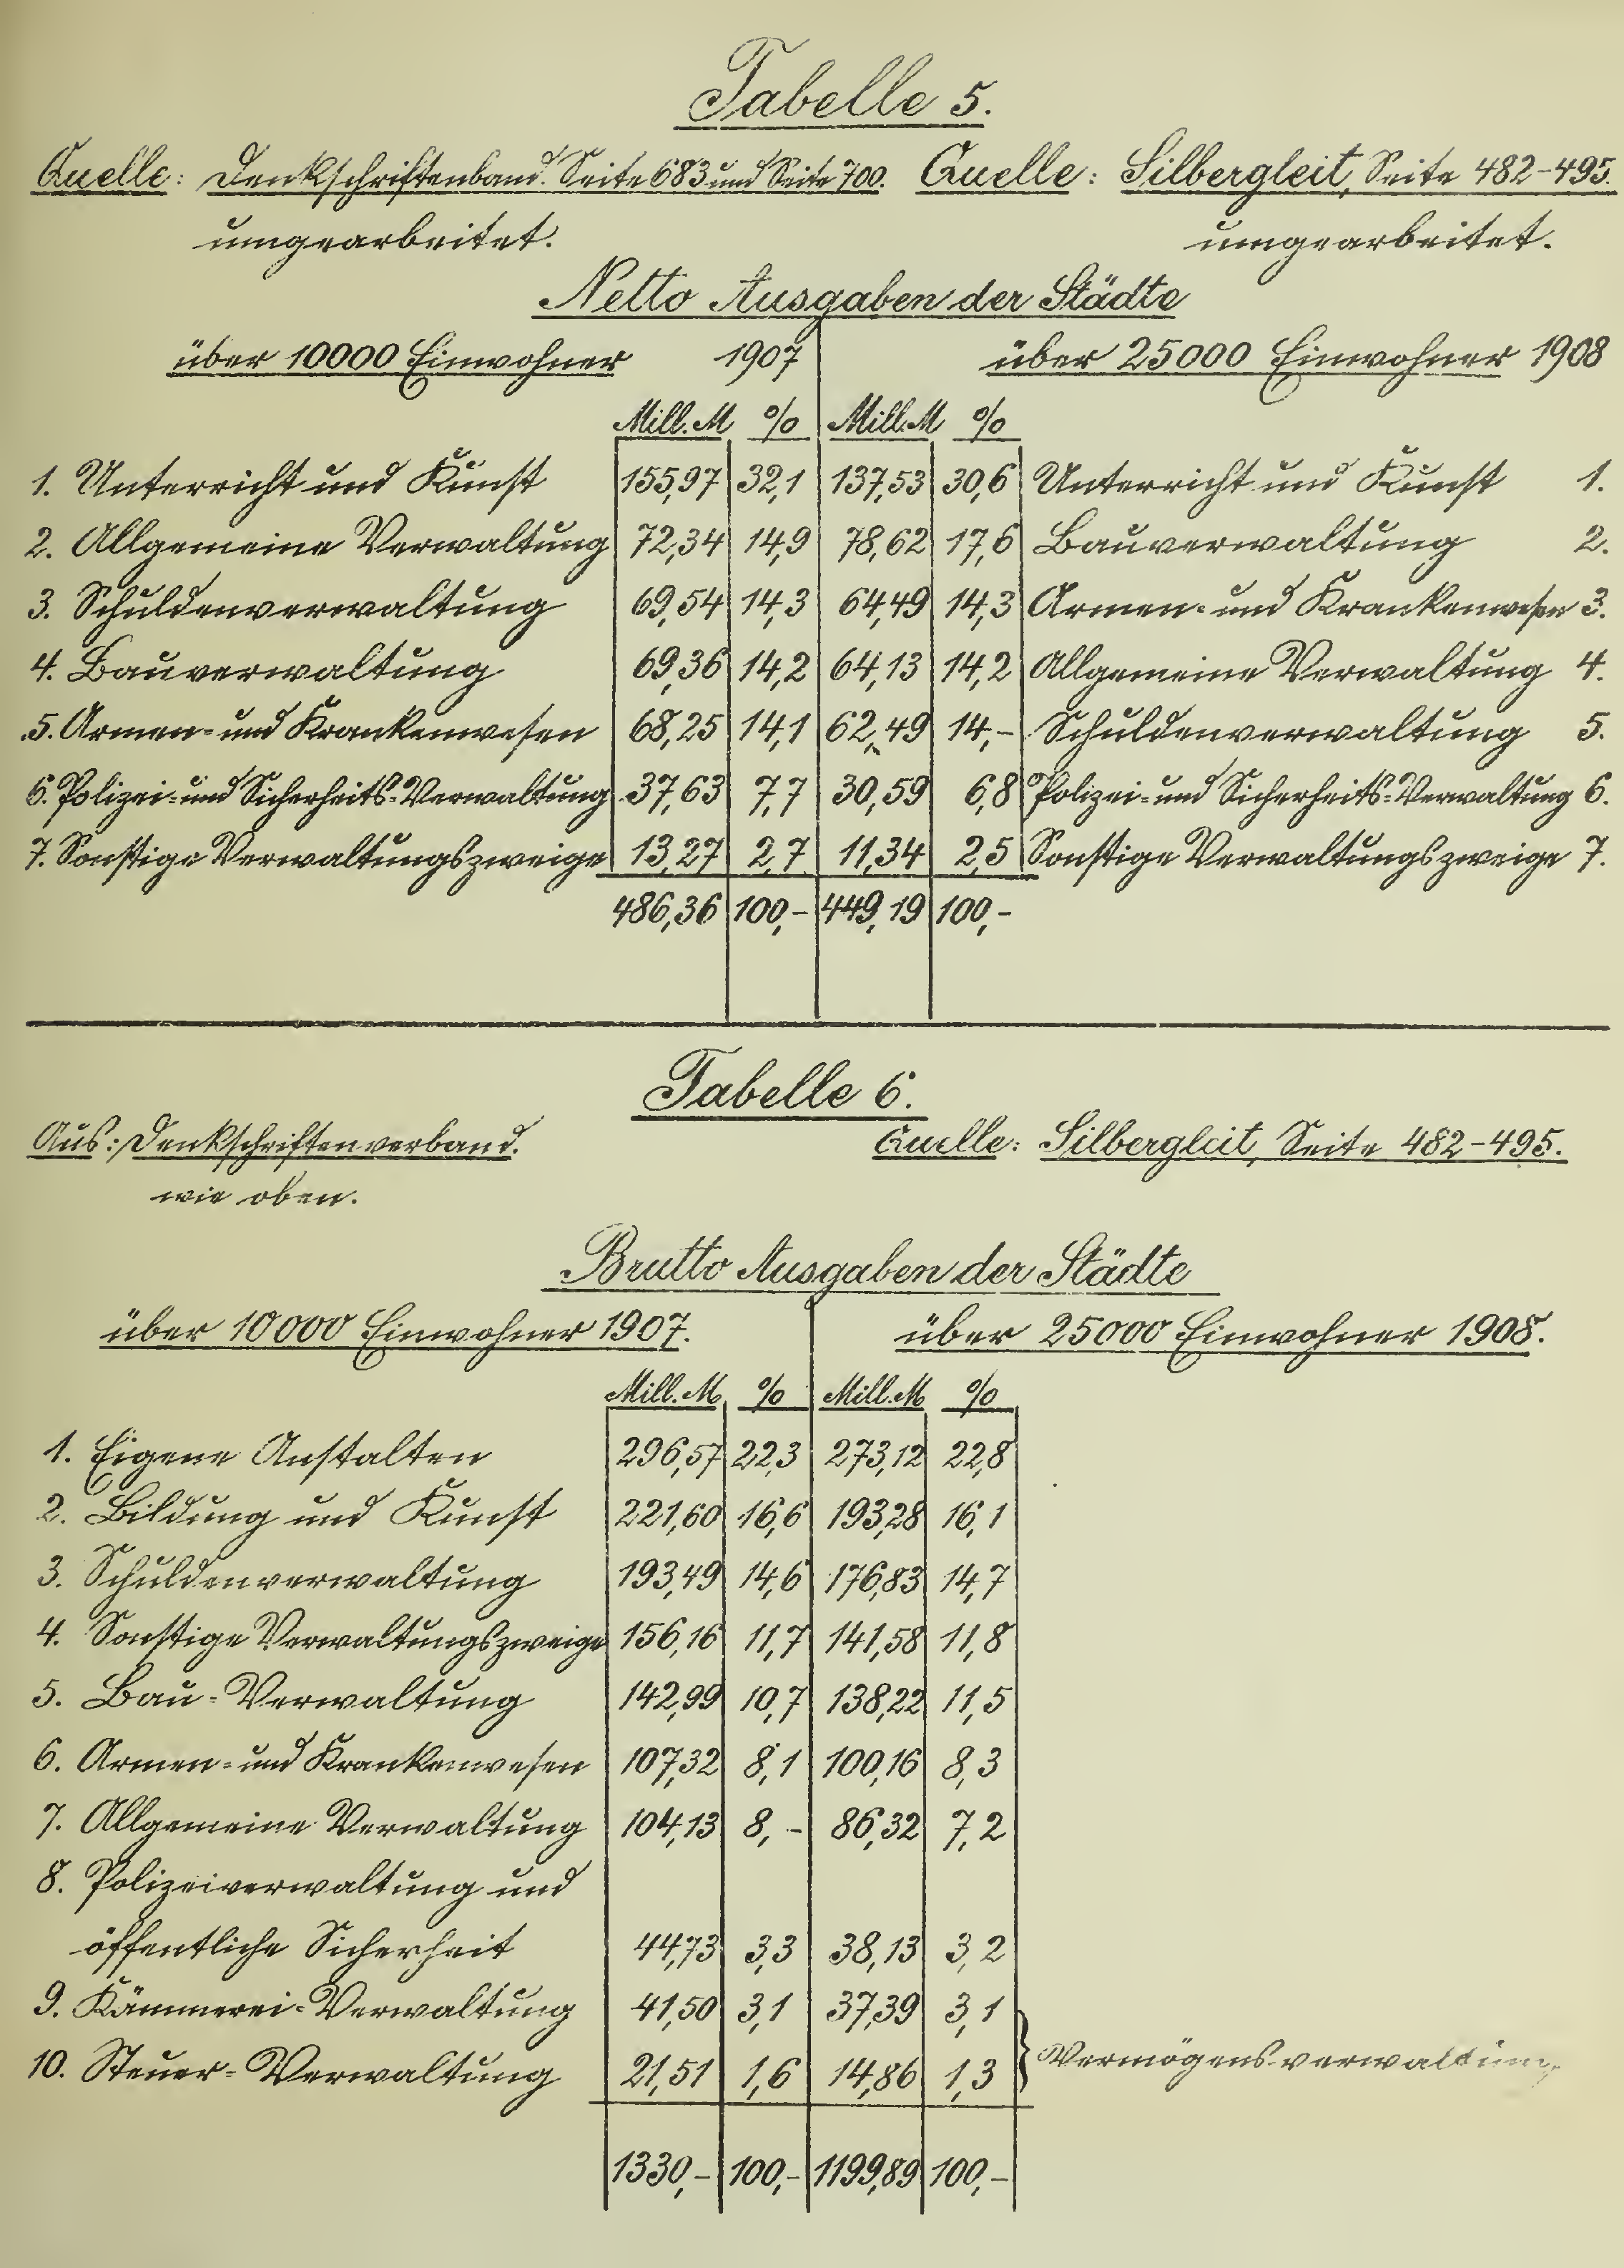 Tabelle 5.
Quelle: Denkschriftenband. Seite 683 und Seite 700. Quelle: Silbergleit, Seite 482-495.
umgearbeitet. umgearbeitet.
Netto Ausgaben der Städte
über 10000 Einwohner 1907 über 25000 Einwohner 1908
Mill. M % Mill. M %
1. Unterricht und Kunst 155,97 32,1 137,53 30,6 Unterricht und Kunst 1.
2. Allgemeine Verwaltung 72,34 14,9 78,62 17,6 Bauverwaltung 2.
3. Schuldenverwaltung 69,54 14,3 64,49 14,3 Armen- und Krankenwesen 3.
4. Bauverwaltung 69,36 14,2 64,13 14,2 Allgemeine Verwaltung 4.
5. Armen- und Krankenwesen 68,25 14,1 62,49 14,- Schuldenverwaltung 5.
6. Polizei- und Sicherheits-Verwaltung 37,63 7,7 30,59 6,8 Polizei- und Sicherheits-Verwaltung 6.
7. Sonstige Verwaltungszweige 13,27 2,7 11,34 2,5 Sonstige Verwaltungszweige 7.
486,36 100,- 449,19 100,-
Tabelle 6.
Aus: Denkschriftenverband. Quelle: Silbergleit, Seite 482-495.
wie oben.
Brutto Ausgaben der Städte
über 10000 Einwohner 1907. über 25000 Einwohner 1908.
Mill. M % Mill. M %
1. Eigene Anstalten 296,57 22,3 273,12 22,8
2. Bildung und Kunst 221,60 16,6 193,28 16,1
3. Schuldenverwaltung 193,49 14,6 176,83 14,7
4. Sonstige Verwaltungszweige 156,16 11,7 141,58 11,8
5. Bau-Verwaltung 142,99 10,7 138,22 11,5
6. Armen- und Krankenwesen 107,32 8,1 100,16 8,3
7. Allgemeine Verwaltung 104,13 8,- 86,32 7,2
8. Polizeiverwaltung und
öffentliche Sicherheit 44,73 3,3 38,13 3,2
9. Kämmerei-Verwaltung 41,50 3,1 37,39 3,1
10. Steuer-Verwaltung 21,51 1,6 14,86 1,3 } Vermögensverwaltung
1330,- 100,- 1199,89 100,-